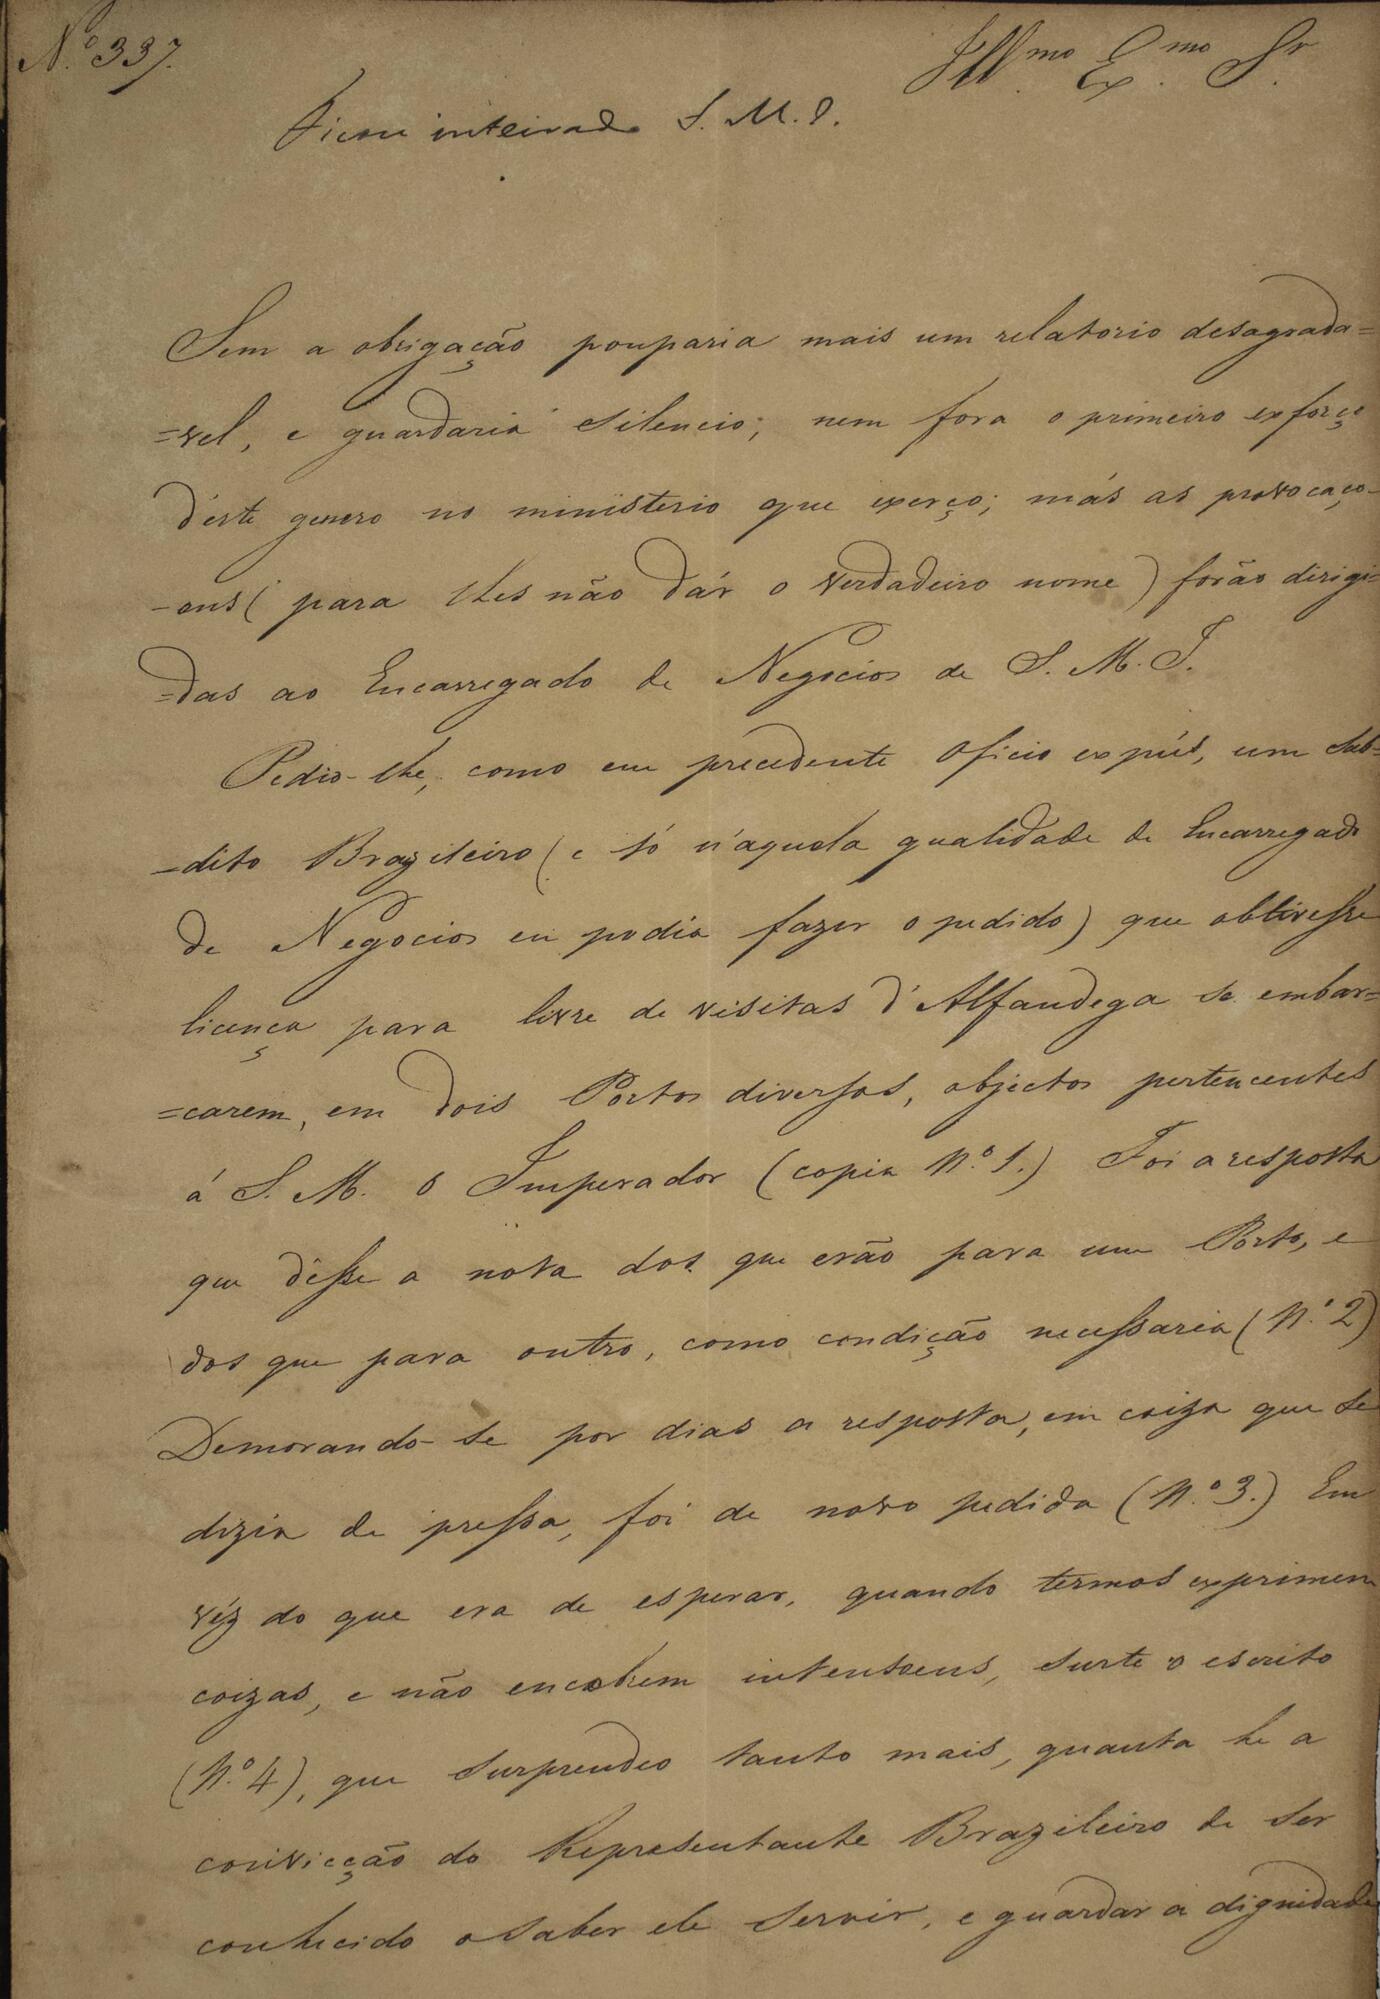 N.º 337.
Ill.mo Ex.mo Sr.
Ficou inteirado S. M. I.
Sem a obrigação pouparia mais um relatorio desagrada=
=vel, e guardaria silencio; nem fora o primeiro exforço
d'éste genero no ministerio que exerço; más as provocaço-
-ens (para lhes não dár o verdadeiro nome) forão dirigi=
=das ao Encarregado de Negocios de S. M. I.
Pedio-lhe, como em precedente Oficio expús, um Sub=
-dito Brazileiro (e só n'aquela qualidade de Encarregado
de Negocios eu podia fazer o pedido) que obtivesse
licença para livre de visitas d'Alfandega se embar=
=carem, em dois Portos diversos, objectos pertencentes
á S. M. O Imperador (copia N.º 1.) Foi a resposta
que désse a nota dos que erão para um Porto, e
dos que para outro, como condição necessaria (N.º 2)
Demorando-se por dias a resposta, em coiza que se
dizia de pressa, foi de novo pedida (N.º 3.) Em
véz do que era de esperar, quando termos exprimem
coizas, e não encobrem intensoens, surte o escrito
(N.º 4), que surprendeo tanto mais, quanta he a
convicção do Representante Brazileiro de ser
conhecido o saber ele servir, e guardar a dignidade